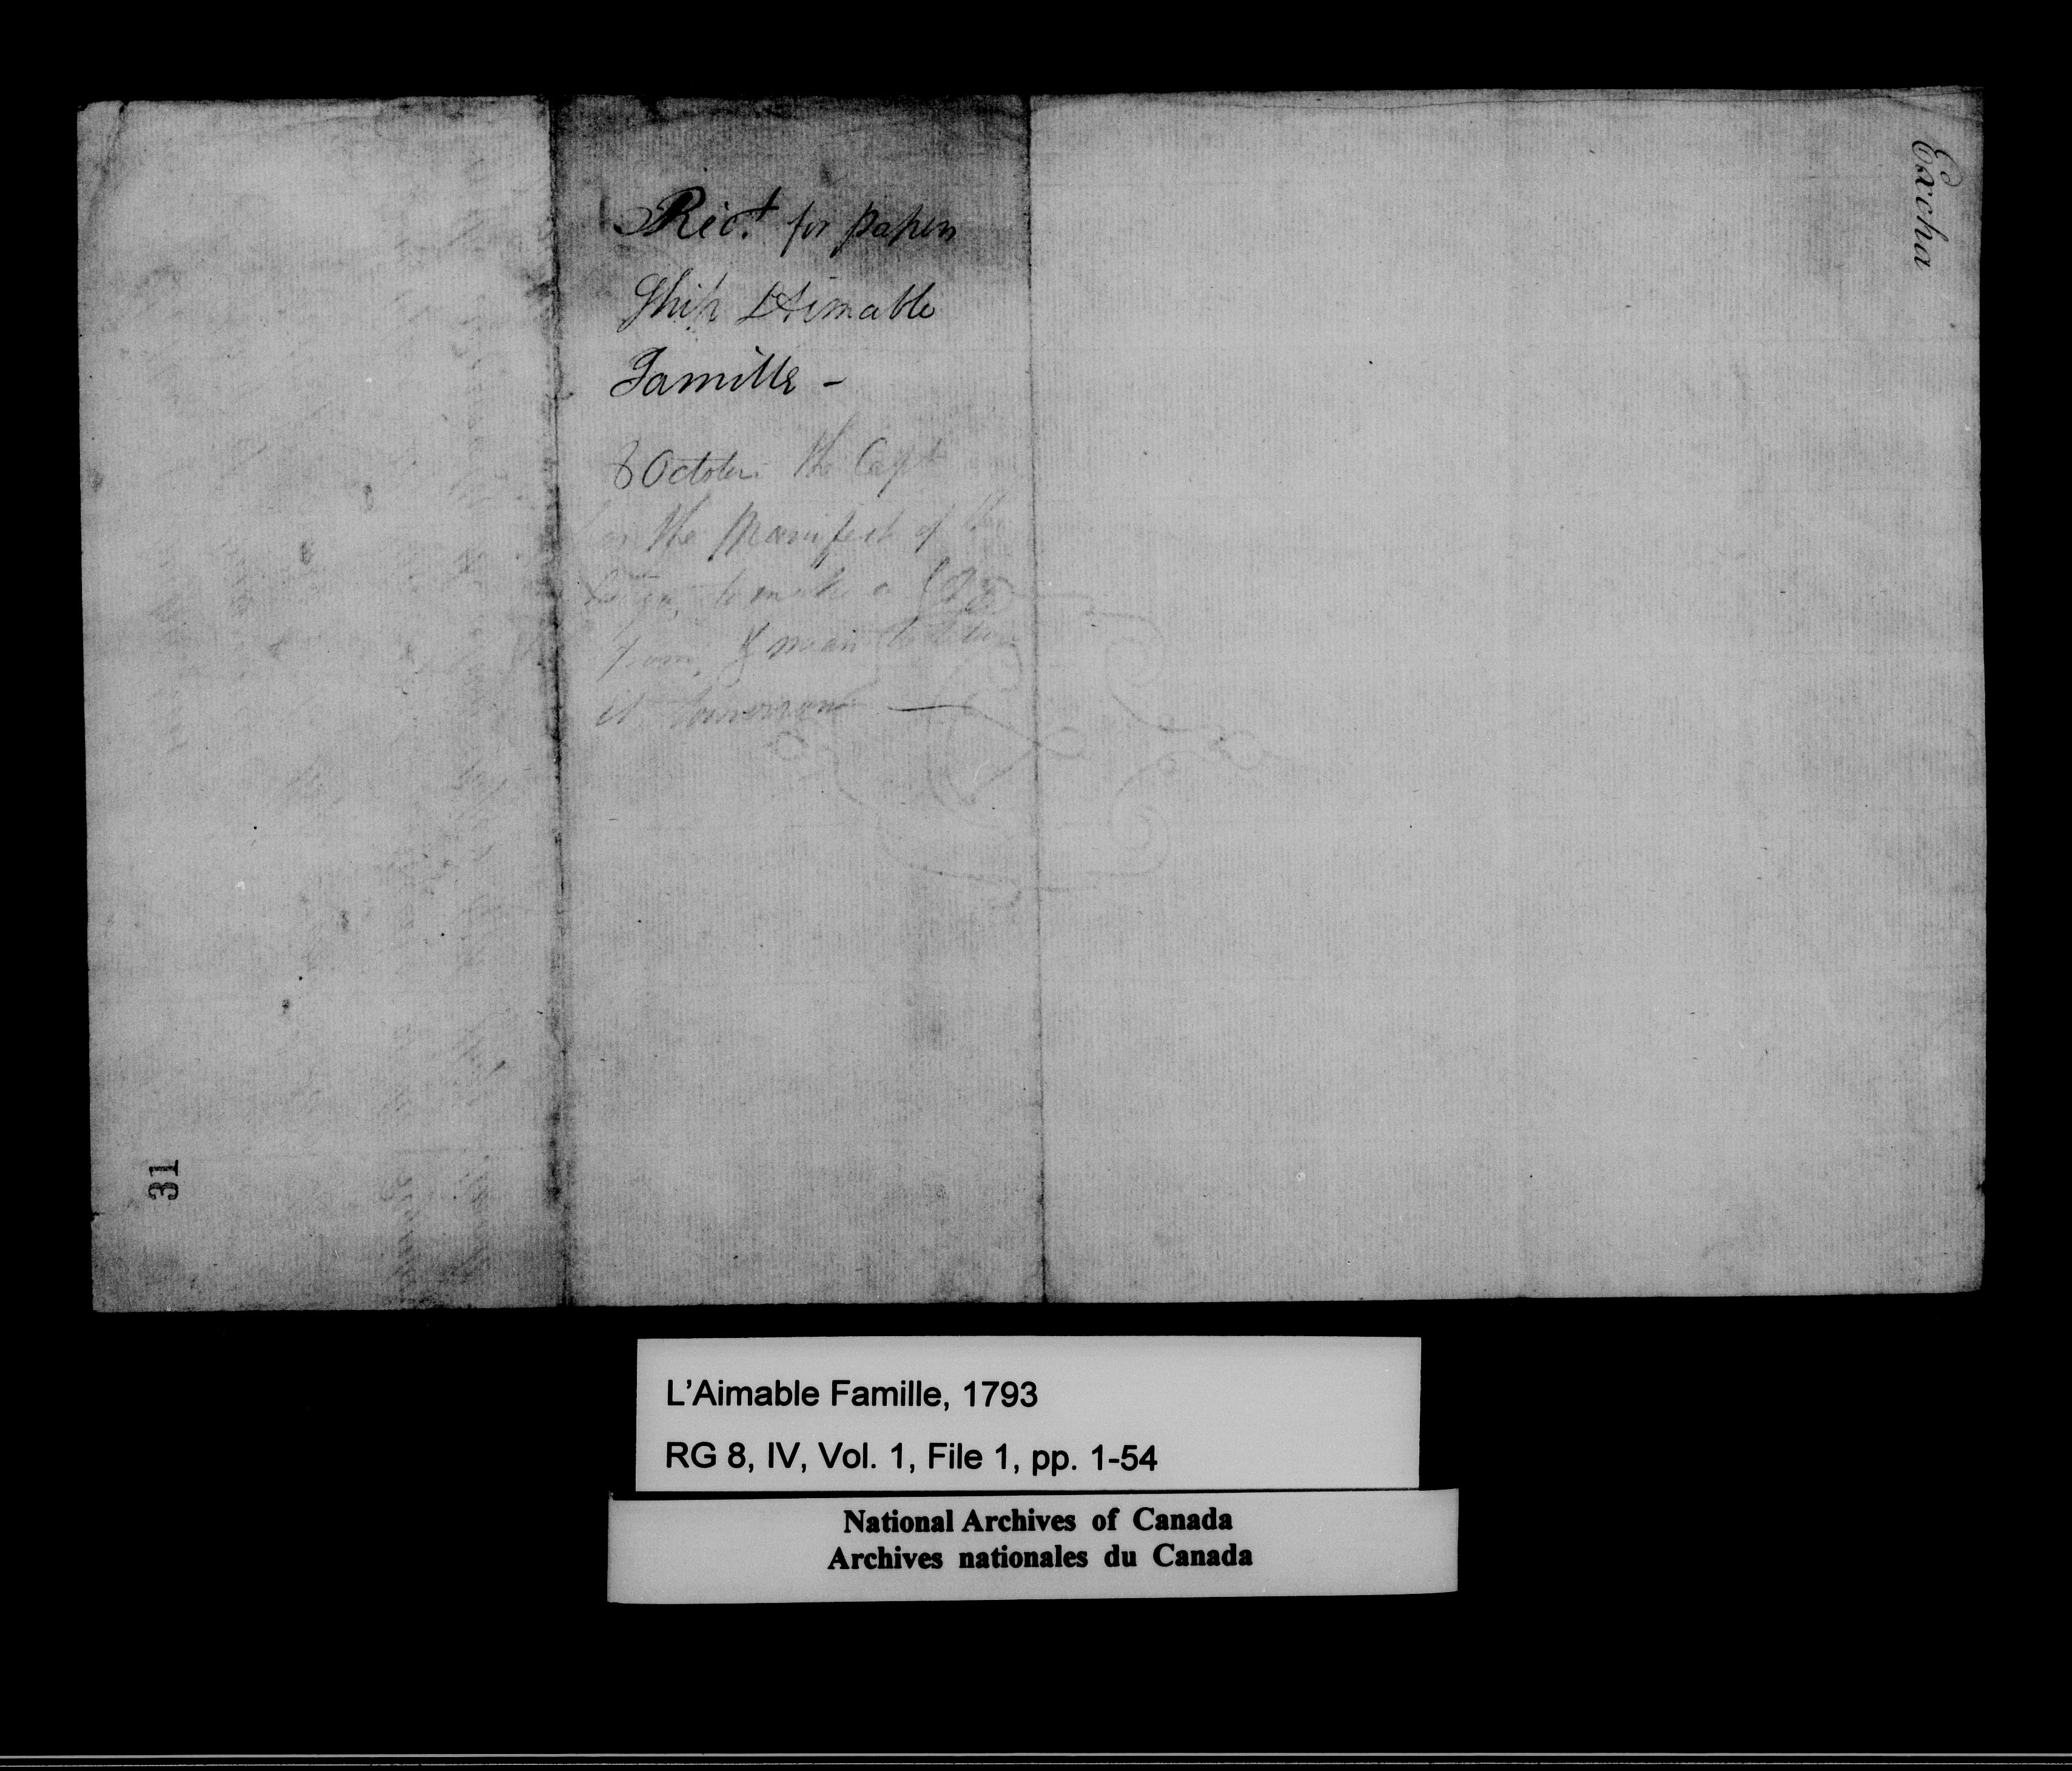 Rec.t for papers
Ship L'Aimable
Famille -
8 October. the Capt
has the Manifest of the
to make a Copy
from, & mean to return
it tomorrow —
Excha
31
L'Aimable Famille, 1793
RG 8, IV, Vol. 1, File 1, pp. 1-54
National Archives of Canada
Archives nationales du Canada